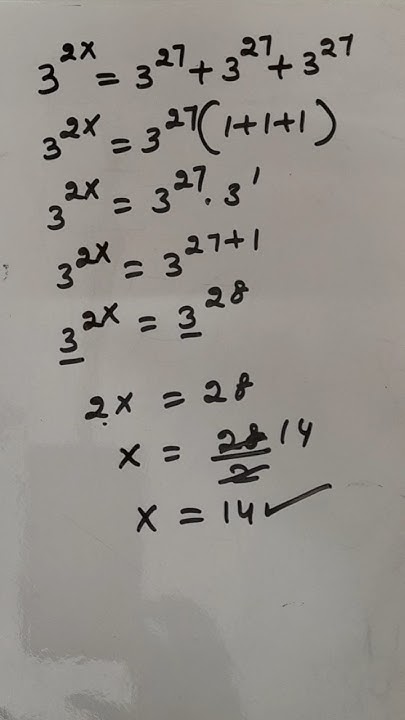 3^{2x} = 3^{27} + 3^{27} + 3^{27}
3^{2x} = 3^{27}(1+1+1)
3^{2x} = 3^{27} . 3^1
3^{2x} = 3^{27+1}
3^{2x} = 3^{28}
2x = 28
x = 28/2 14
x = 14 ✓